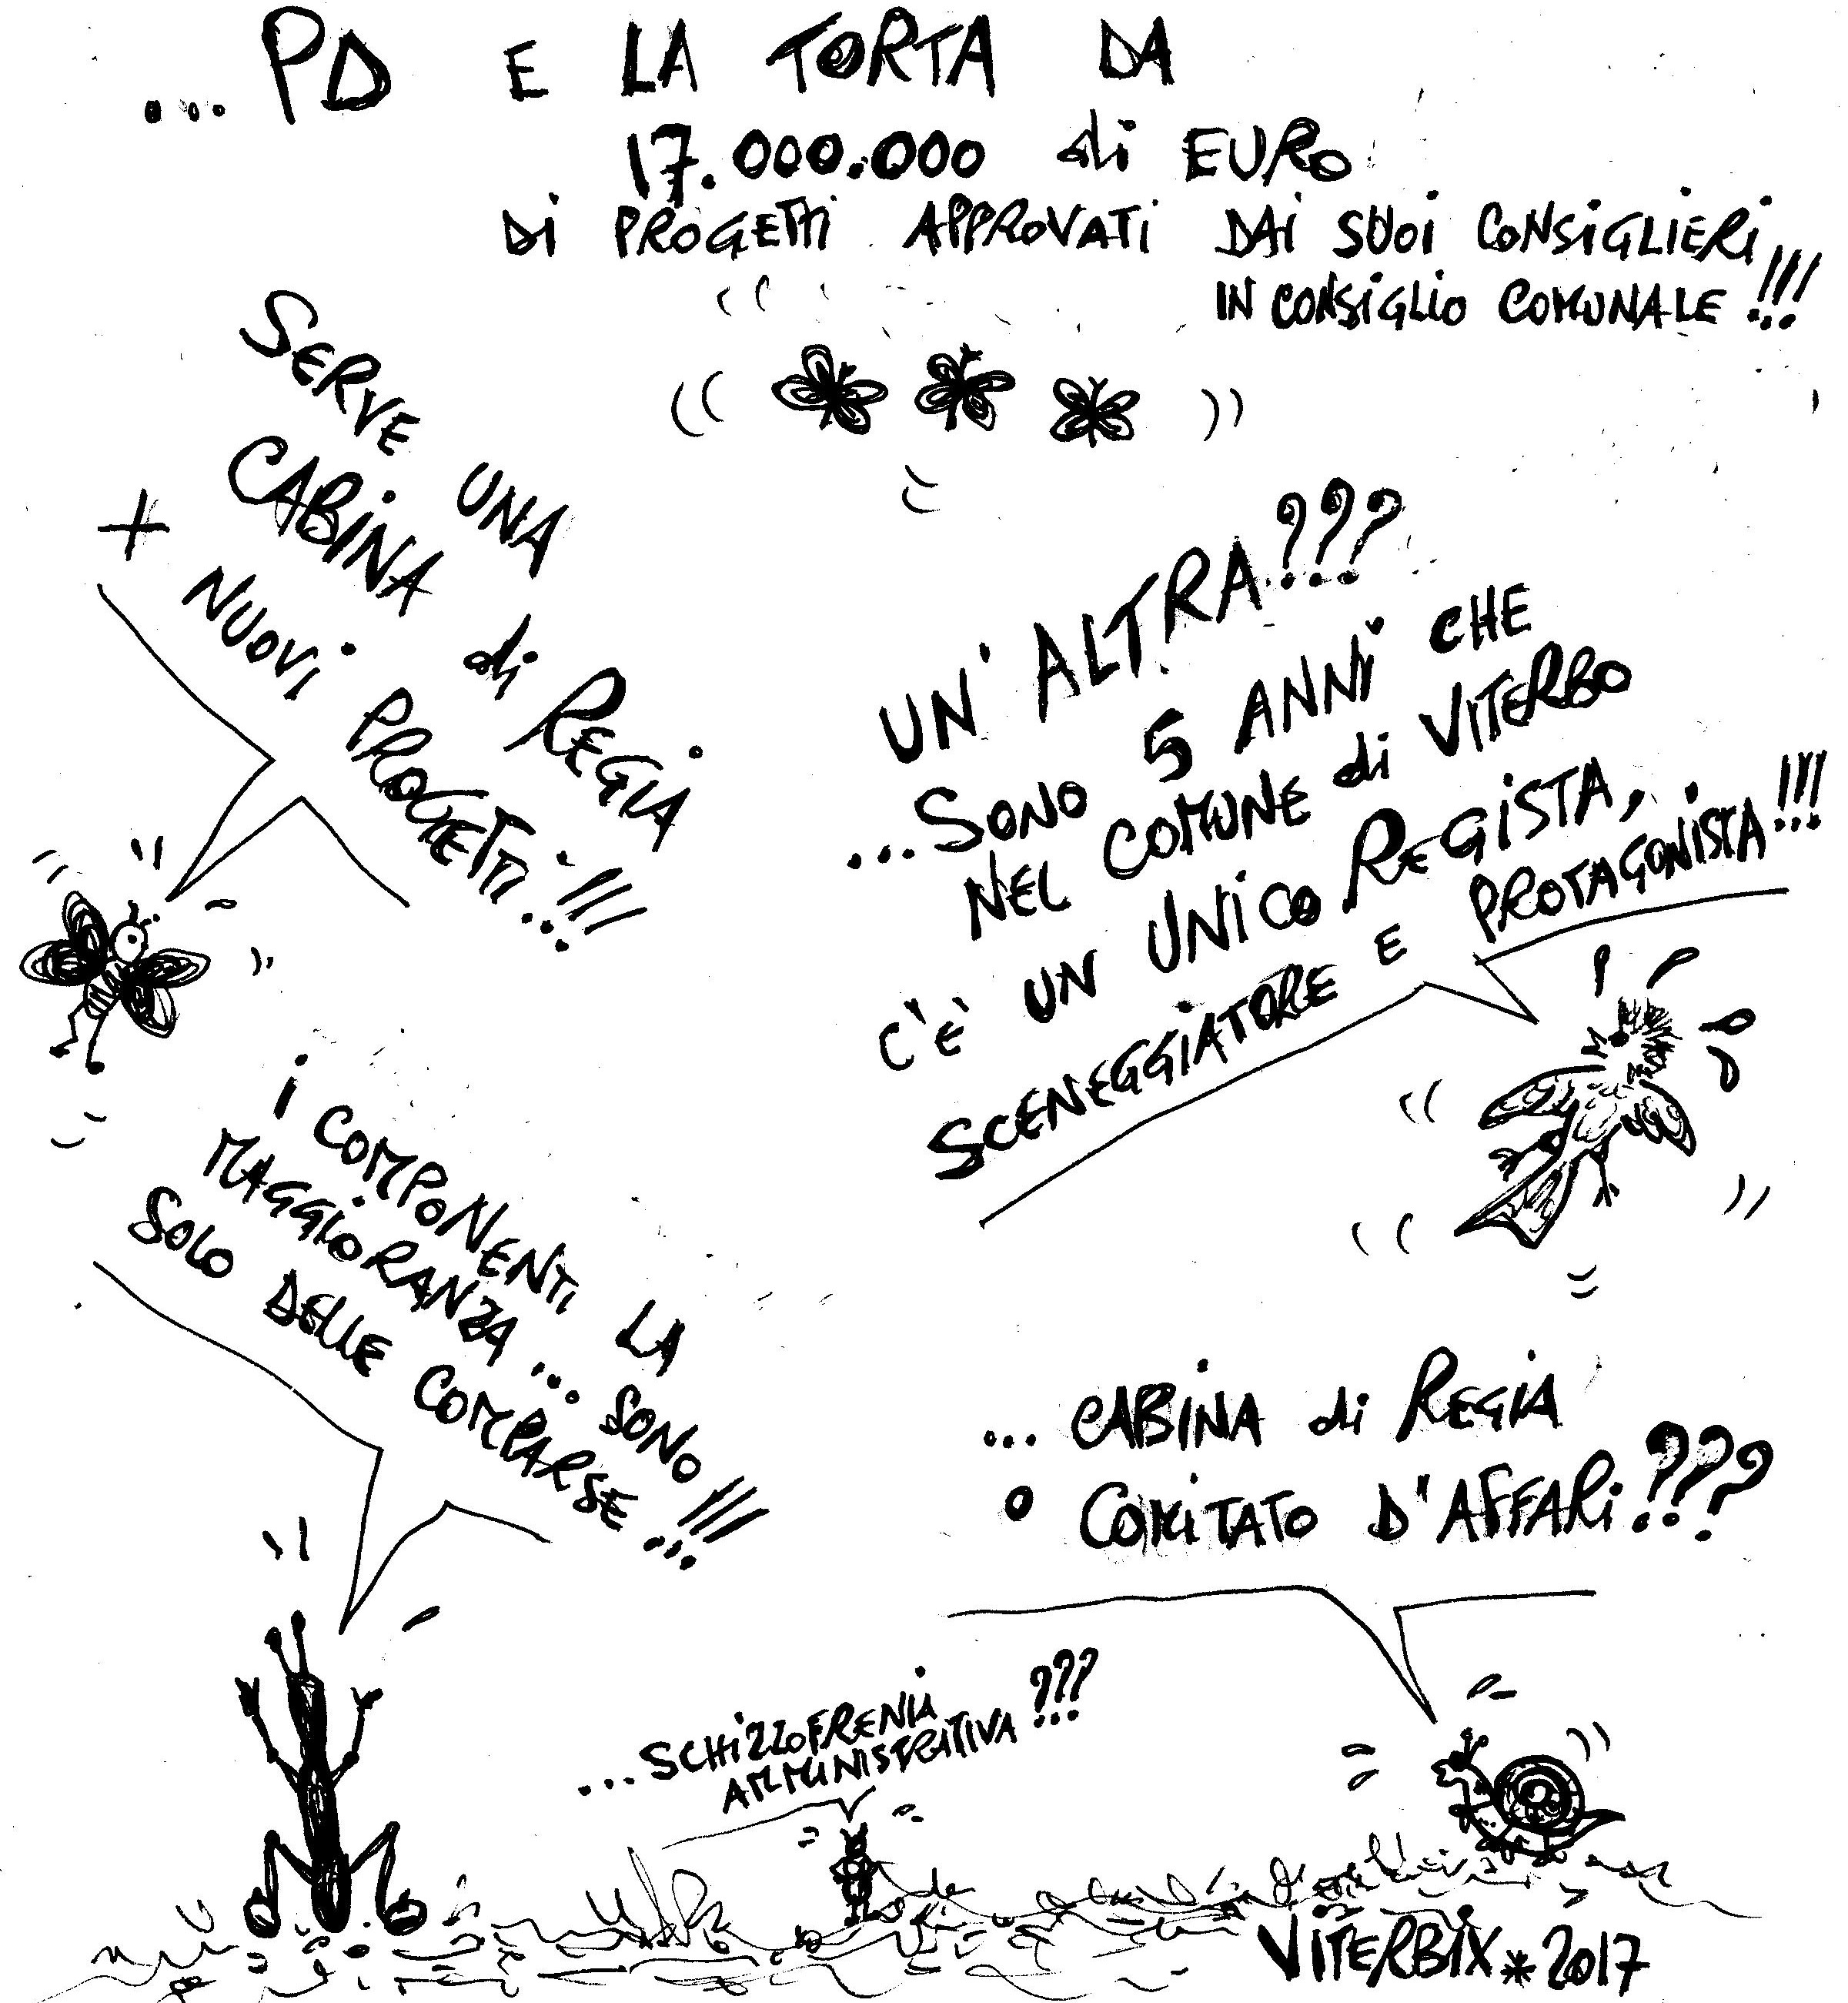 ...PD E LA TORTA DA
17.000.000 di EURO
Di PROGETTi APPROVATi DAi SUOi CONSiGLiERi
IN CONSiGLIO COMUNALE!!!
SERVE UNA
CABiNA di REGIA
+ NUOVi PROGETTi!!!
UN'ALTRA???
...SONO 5 ANNi CHE
NEL COMUNE di VITERBO
C'È UN UNiCO REGiSTA,
SCENEGGiATORE E PROTAGONiSTA!!!
i COMPONENTi LA
MAGGiORANZA... SONO
SOLO DELLE COMPARSE!!!
...CABiNA di REGiA
O COMiTATO D'AFFARi???
...SCHiZZOFRENiA
AMMiNiSTRATiVA???
ViTERBiX*2017